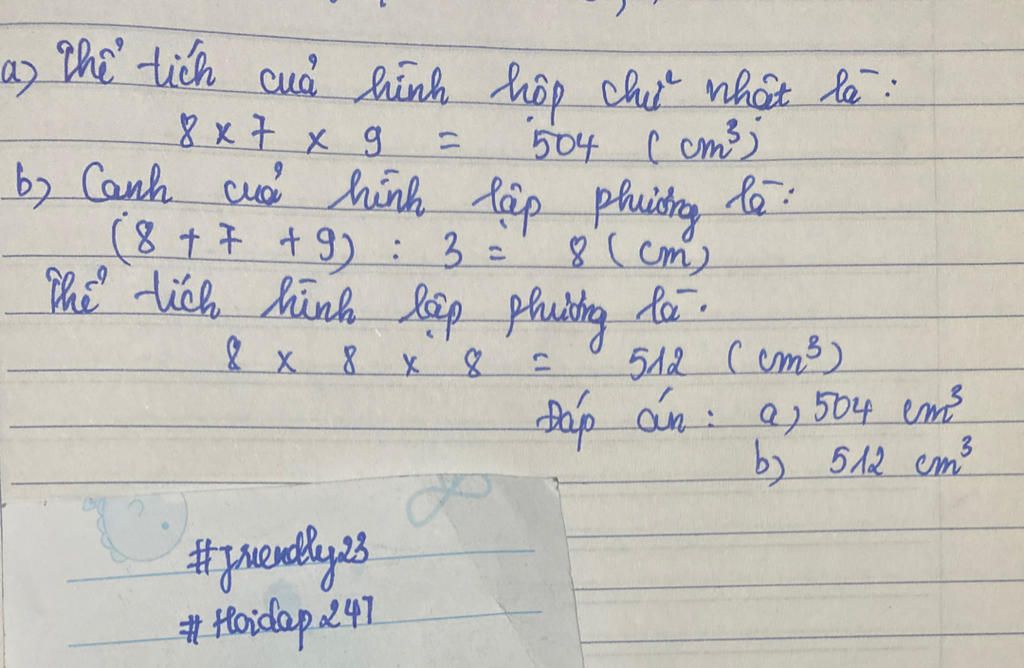 a) Thể tích của hình hộp chữ nhật là:
8 x 7 x 9 = 504 (cm³)
b) Cạnh của hình lập phương là:
(8 + 7 + 9) : 3 = 8 (cm)
Thể tích hình lập phương là:
8 x 8 x 8 = 512 (cm³)
Đáp án: a) 504 cm³
b) 512 cm³
#friendly23
#Hoidap247